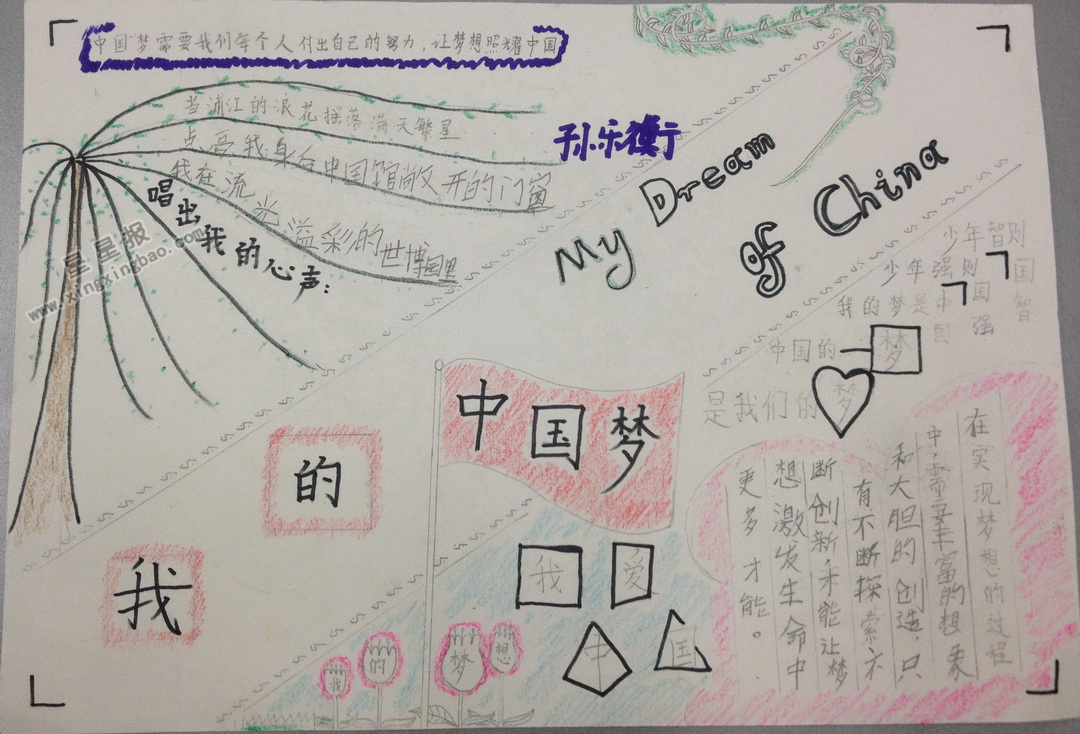 中国梦需要我们每个人付出自己的努力,让梦想照耀中国
当浦江的浪花摇落满天繁星
点亮我身后中国馆敞开的门窗
我在流光溢彩的世博园里
唱出我的心声:
星星报
www.xingxingbao.com
My Dream
of China
少年智则国智
少年强则国强
我的梦是中国
中国的梦
是我们的梦
我的
中国梦
我爱
中国
我的梦想
在实现梦想的过程
中,需要丰富的想象
和大胆的创造,只
有不断探索不
断创新,才能让梦
想激发生命中
更多才能。